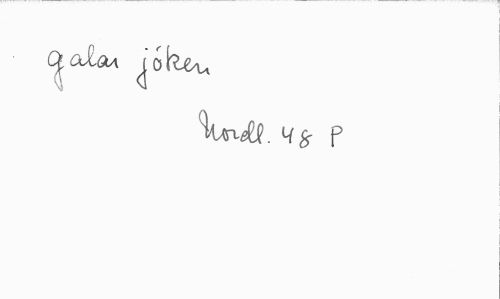 galan jóken
Nordl. 48 P